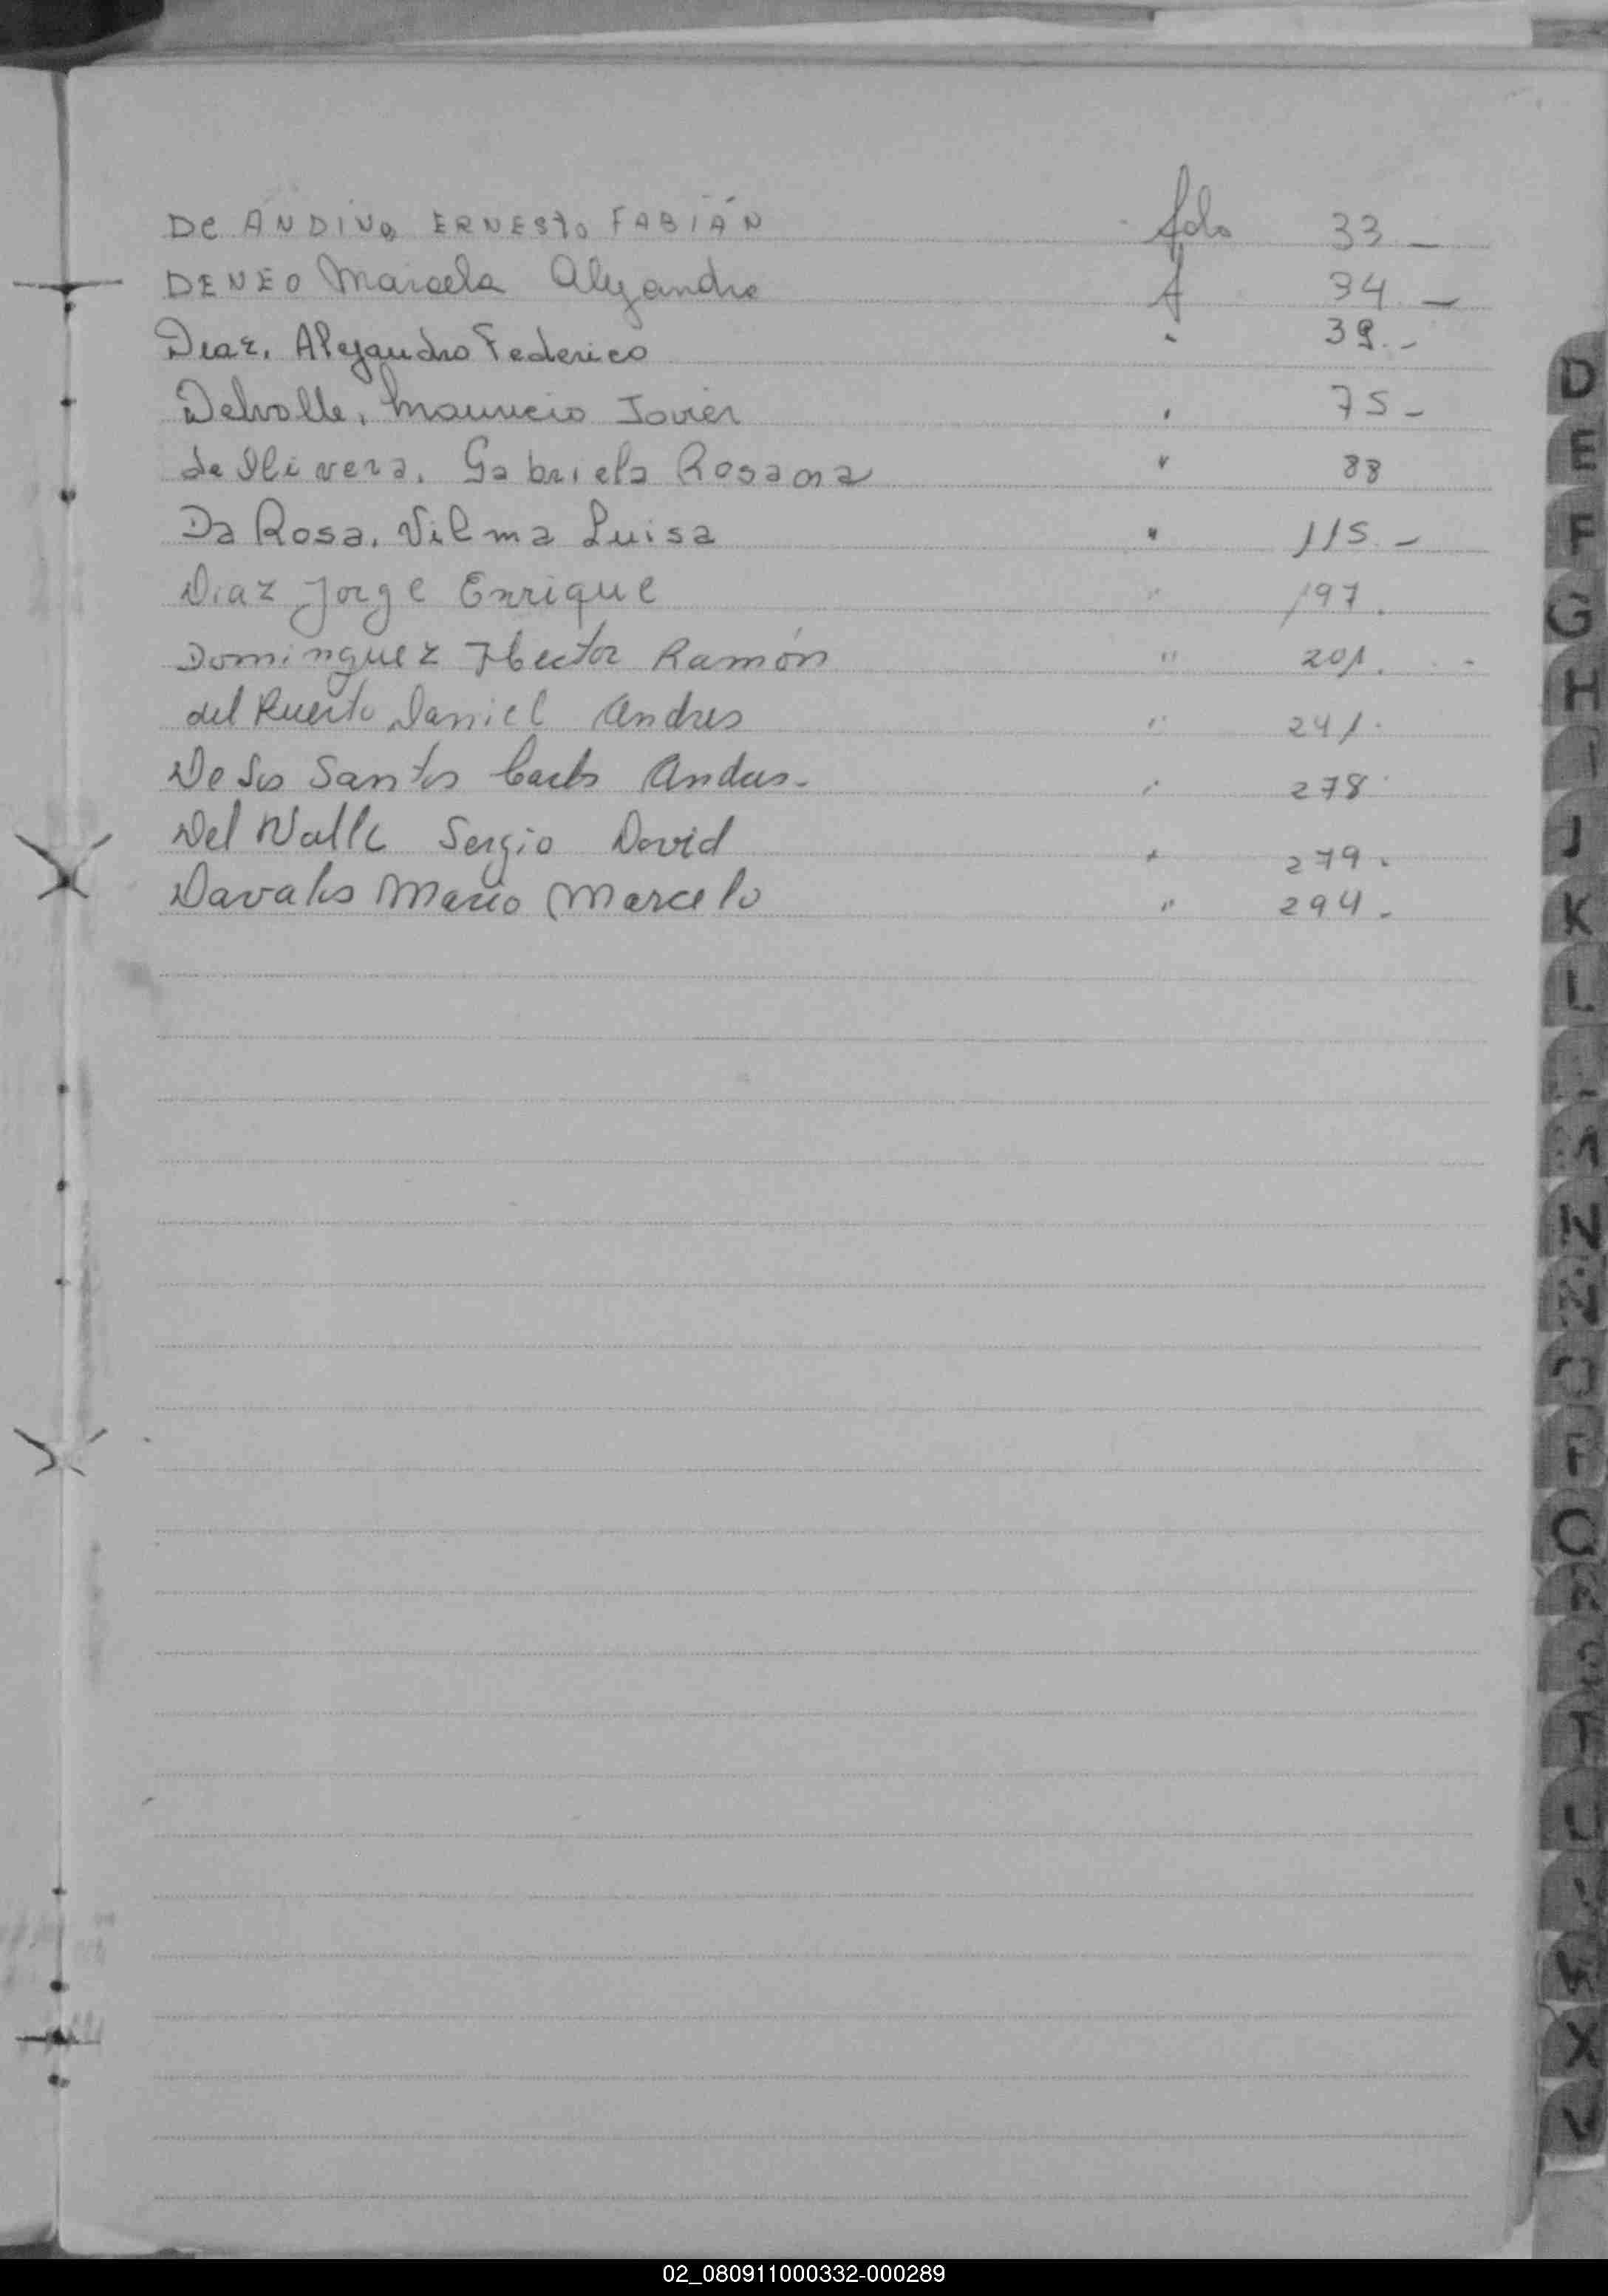 De ANDINO ERNESTO FABIÁN folo 33 _
DENEO Marcela Alejandra f 34 _
Diaz, Alejandro Federico " 39. -
Delvalle, Mauricio Javier " 75 -
de Olivera, Gabriela Rosana " 88
Da Rosa, Vilma Luisa " 115. -
Diaz Jorge Enrique " 197.
Dominguez Hector Ramón " 201. -
del Puerto Daniel Andres " 241.
De los Santos Carlos Andres - " 278
Del Valle Sergio David " 279.
Davalos Mario Marcelo " 294.
D
E
F
G
H
I
J
K
L
N
O
Q
T
U
X
02_080911000332-000289